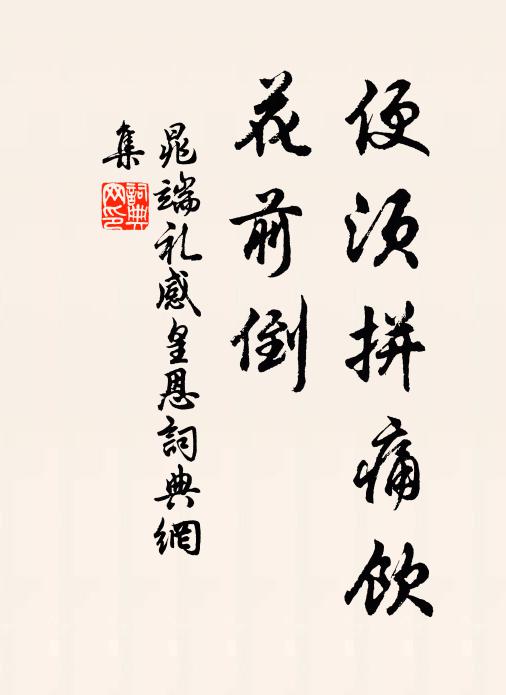 便須拼痛飲
花前倒
晁端礼感皇恩詞典網
集
詞典
网印